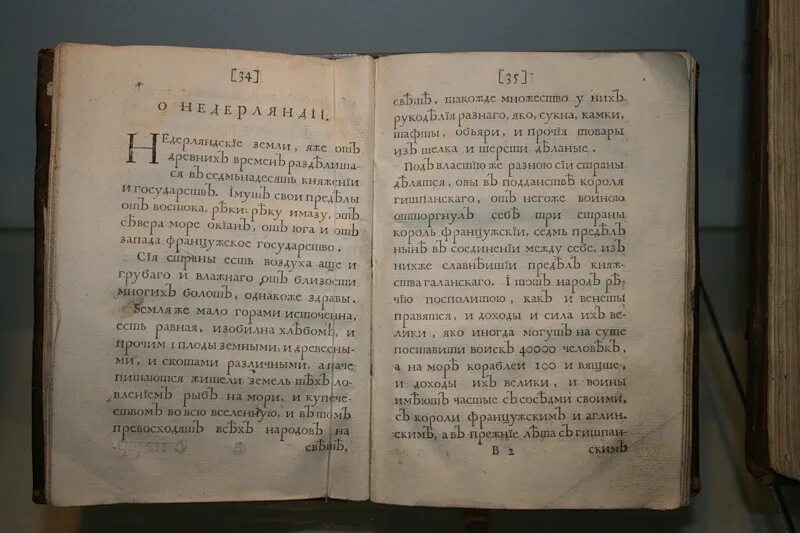 [34]
О НЕДЕРЛЯНДІІ.
НЕдерляндскіе земли, яже отъ
древнихъ временъ раздѣлиша-
ся въ седмьнадесять княженіи
и государствъ. Імутъ свои предѣлы
отъ востока, рѣки: рѣку имазу, отъ
сѣвера море окіанъ, отъ юга и отъ
запада французкое государство.
Сія страны есть воздуха аще и
грубаго и влажнаго отъ близости
многихъ болотъ, однакоже здравы.
Земля же мало горами истоценна,
есть равная, изобилна хлѣбомъ, и
прочим і плоды земными, и древесны-
ми, и скотами различными, а паче
питаются жители земель тѣхъ ло-
вленіемъ рыбъ на мори, и купече-
ствомъ во всю вселенную, и въ томъ
превосходятъ всѣхъ народовъ на
свѣтѣ,
[35]
свѣтѣ, такожде множество у нихъ
рукодѣлія разнаго, яко, сукна, камки,
тафты, объяри, и прочія товары
изъ шелка и шерсти дѣланые.
Подъ властію же разною сіи страны
дѣлятся, овы въ подданствѣ короля
гишпанскаго, отъ негоже воиною
отторгнулъ себѣ три страны
король французскіи, седмь предѣлъ
нынѣ въ соединеніи между себе, изъ
нихже славнѣишіи предѣлъ княж-
ства галанскаго. І тотъ народъ рѣ-
чію посполитою, какъ и венеты
правятся, и доходы и сила ихъ ве-
лики, яко иногда могутъ на суше
поставити воискъ 40000 человѣкъ,
а на морѣ кораблеи 100 и вящше,
и доходы ихъ велики, и воины
имѣютъ частые съ сосѣдми своими,
съ короли французскимъ и аглин-
скимъ, а въ прежніе лѣта съ гишпан-
В 2 скимъ